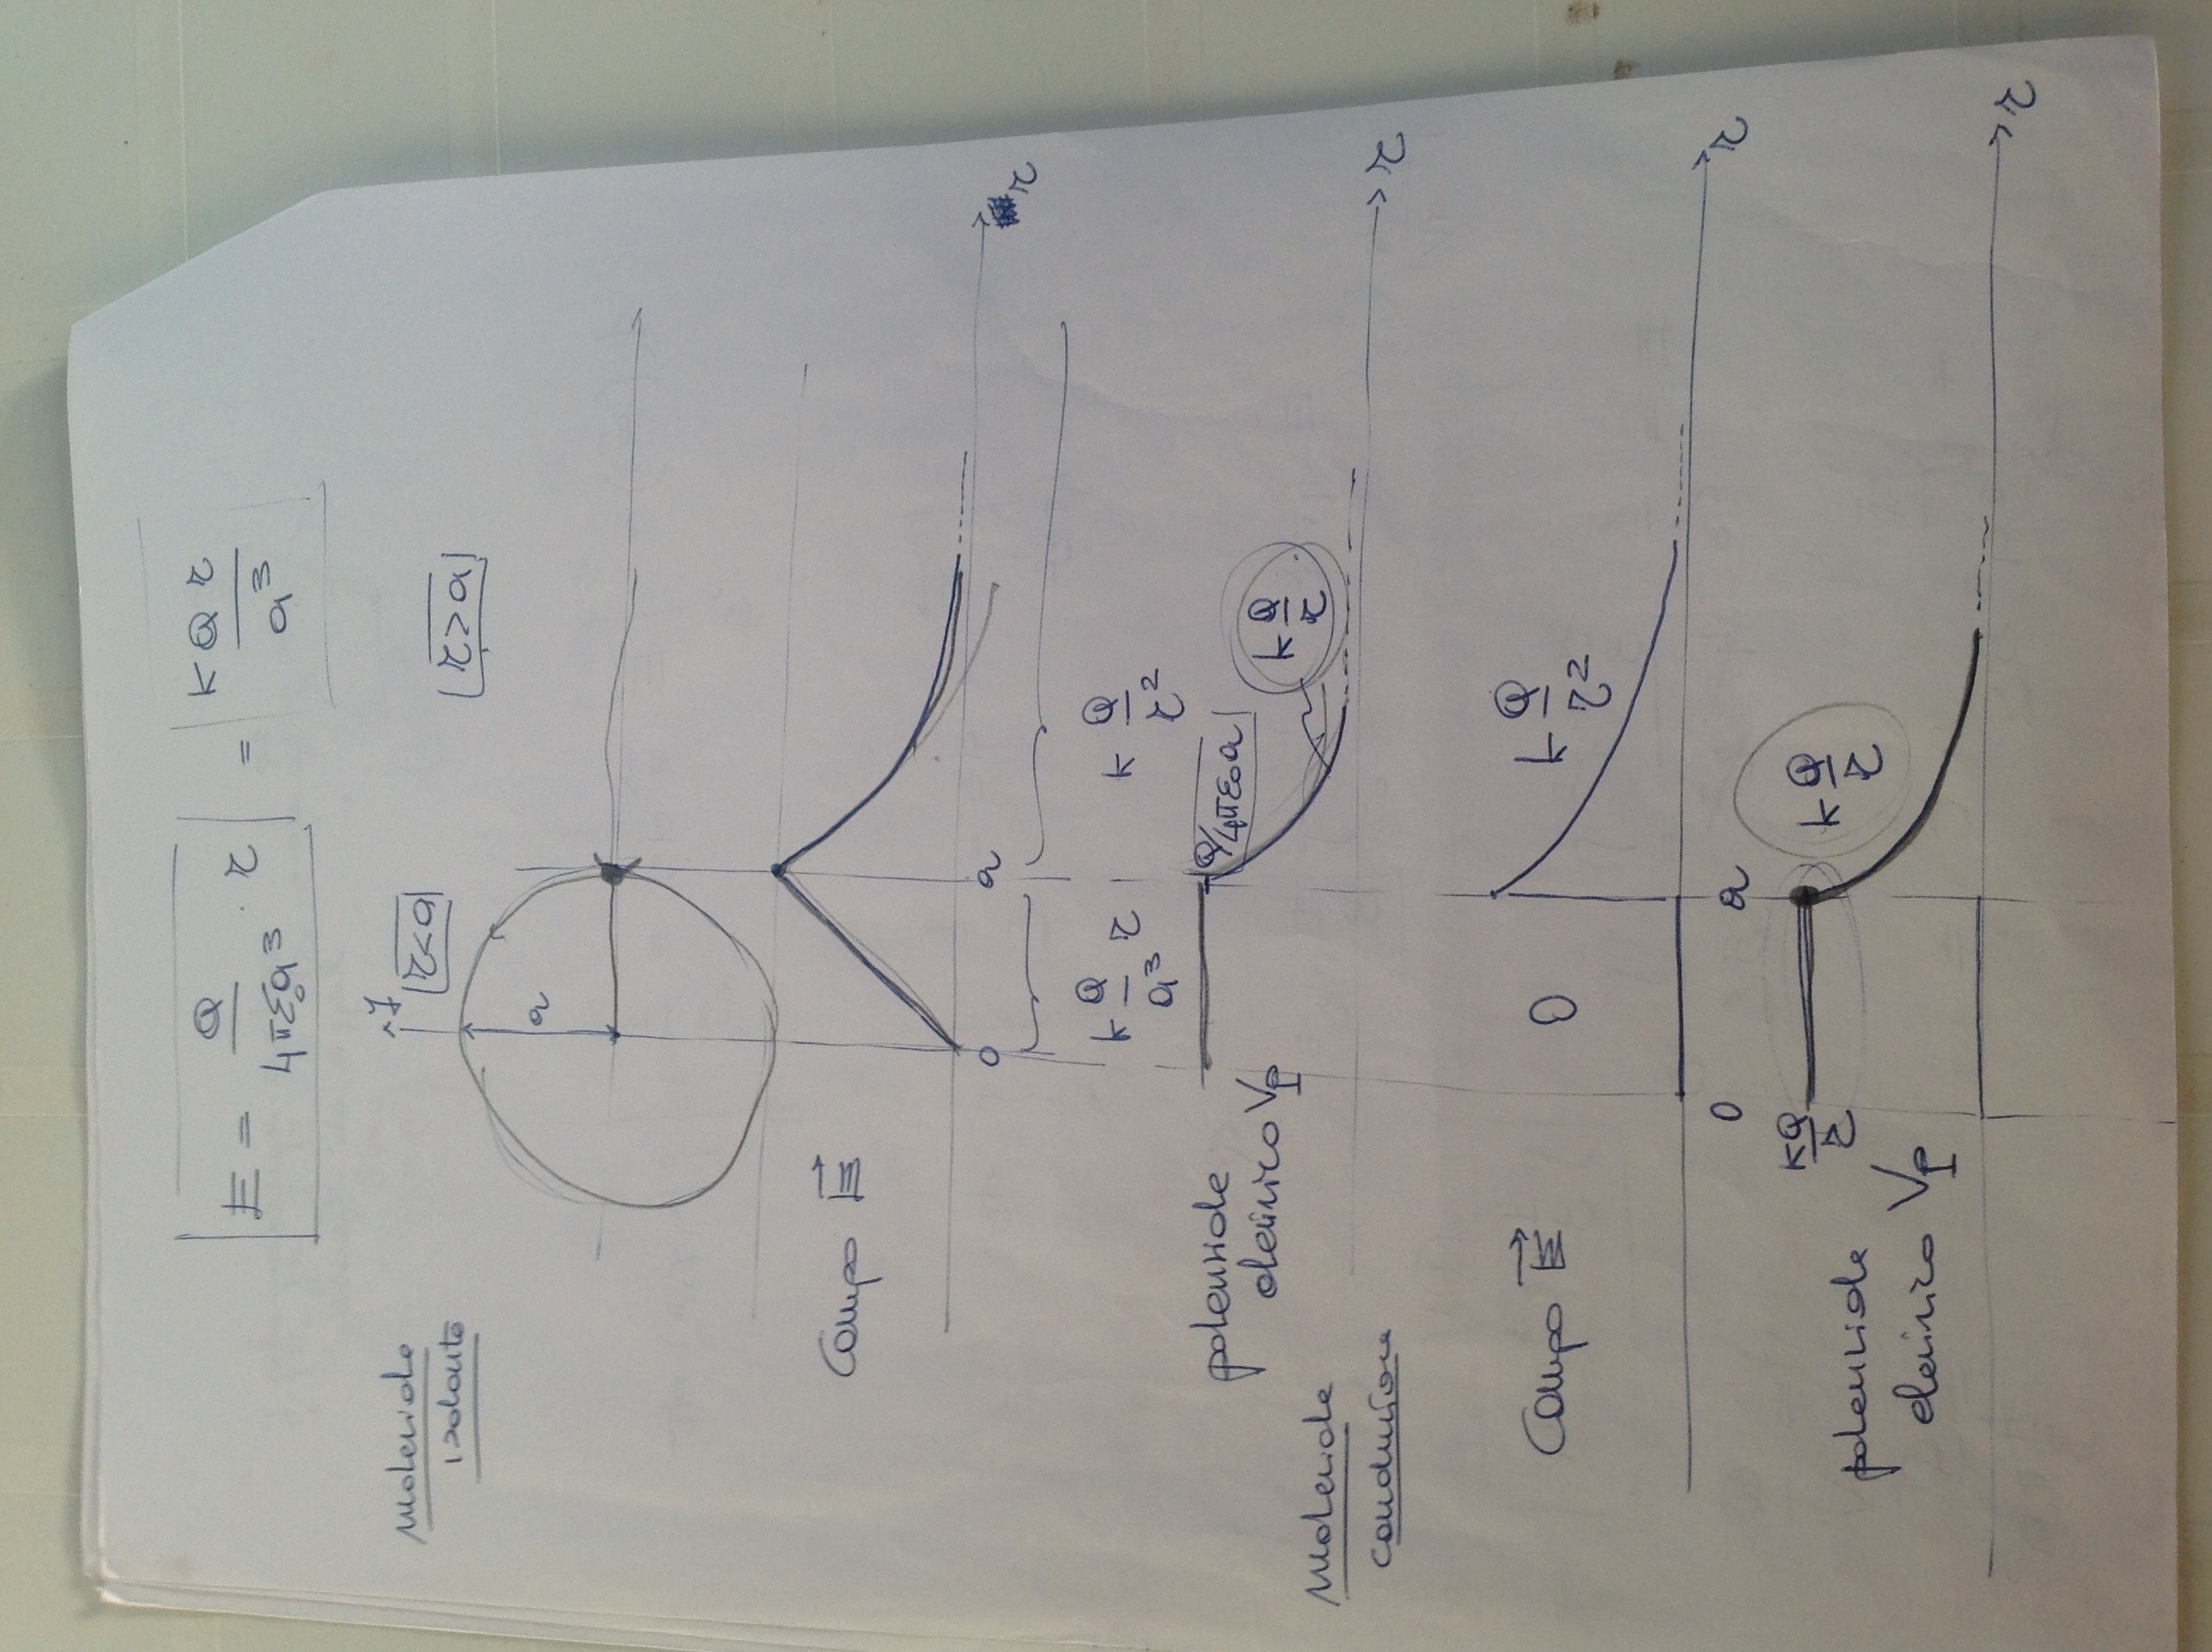 E = Q / 4πε₀a³ · r = K Q r / a³
Materiale
isolante
y
r<a
r>a
a
Campo E⃗
0 a
r
K Q/a³ r K Q/r²
potenziale
elettrico Vp
Q/4πε₀a
K Q/r
Materiale
conduttore
r
Campo E⃗
0
K Q/r²
0 a
r
KQ/r
K Q/r
potenziale
elettrico Vp
r